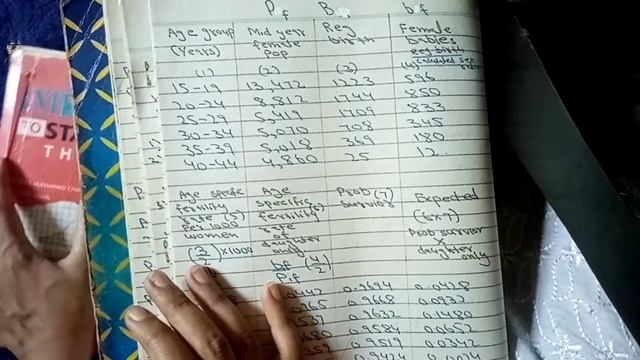 Pf B bf
Age group Mid year Reg Female
(Years) female birth babies
pop Reg birth
(1) (2) (3) (4)
15-19 13,472 1223 596
20-24 8,812 1744 850
25-29 5,419 1709 833
30-34 5,070 708 345
35-39 5,018 369 180
40-44 4,860 25 12
Age specific Age Prob (7) Expected
fertility specific survivor
rate (5) fertility (6) (6x7)
per 1000 rate
women of Prob survivor
(3/2)x1000 daughter x
only daughter
bf (4/2) only
Pf
0442 0.9694 0.0428
0965 0.9668 0.0932
1531 0.9632 0.1480
0680 0.9584 0.0652
0.9519 0.0342
0.9424
TO STA
TH
MUHAMMAD